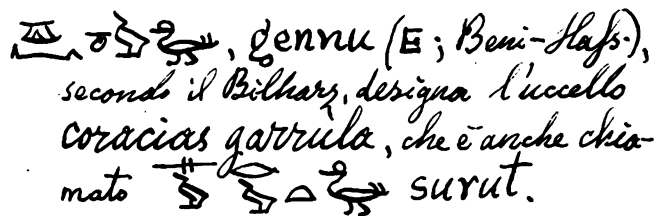 , g̣ennu (E; Beni-Haſs.),
secondo il Bilharz, designa l'uccello
coracias garrùla, che è anche chia-
mato surut.